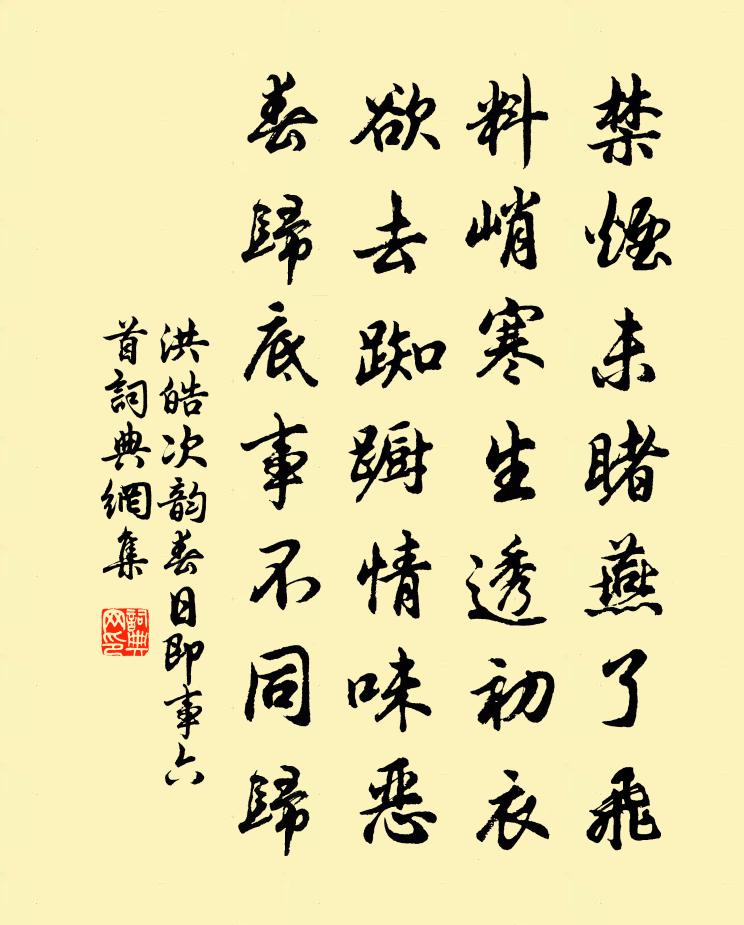 禁煙未睹燕了飛
料峭寒生透初衣
欲去踟躕情味惡
春歸底事不同歸
洪皓次韵春日即事六
首詞典網集
詞典网印